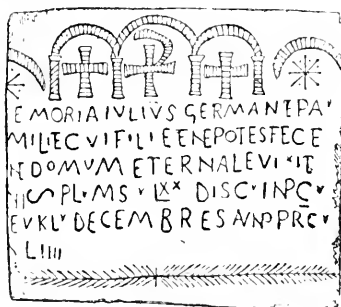 EMORIA IVLIVS GERMANE PA
MILI ET CVI FILI E ENEPOTES FECE
NE DOMVM ETERNALE VI XIT
IIS PL MS LXX DISC IN PC
E VKL DECEMBRES ANN PRC
LIIII